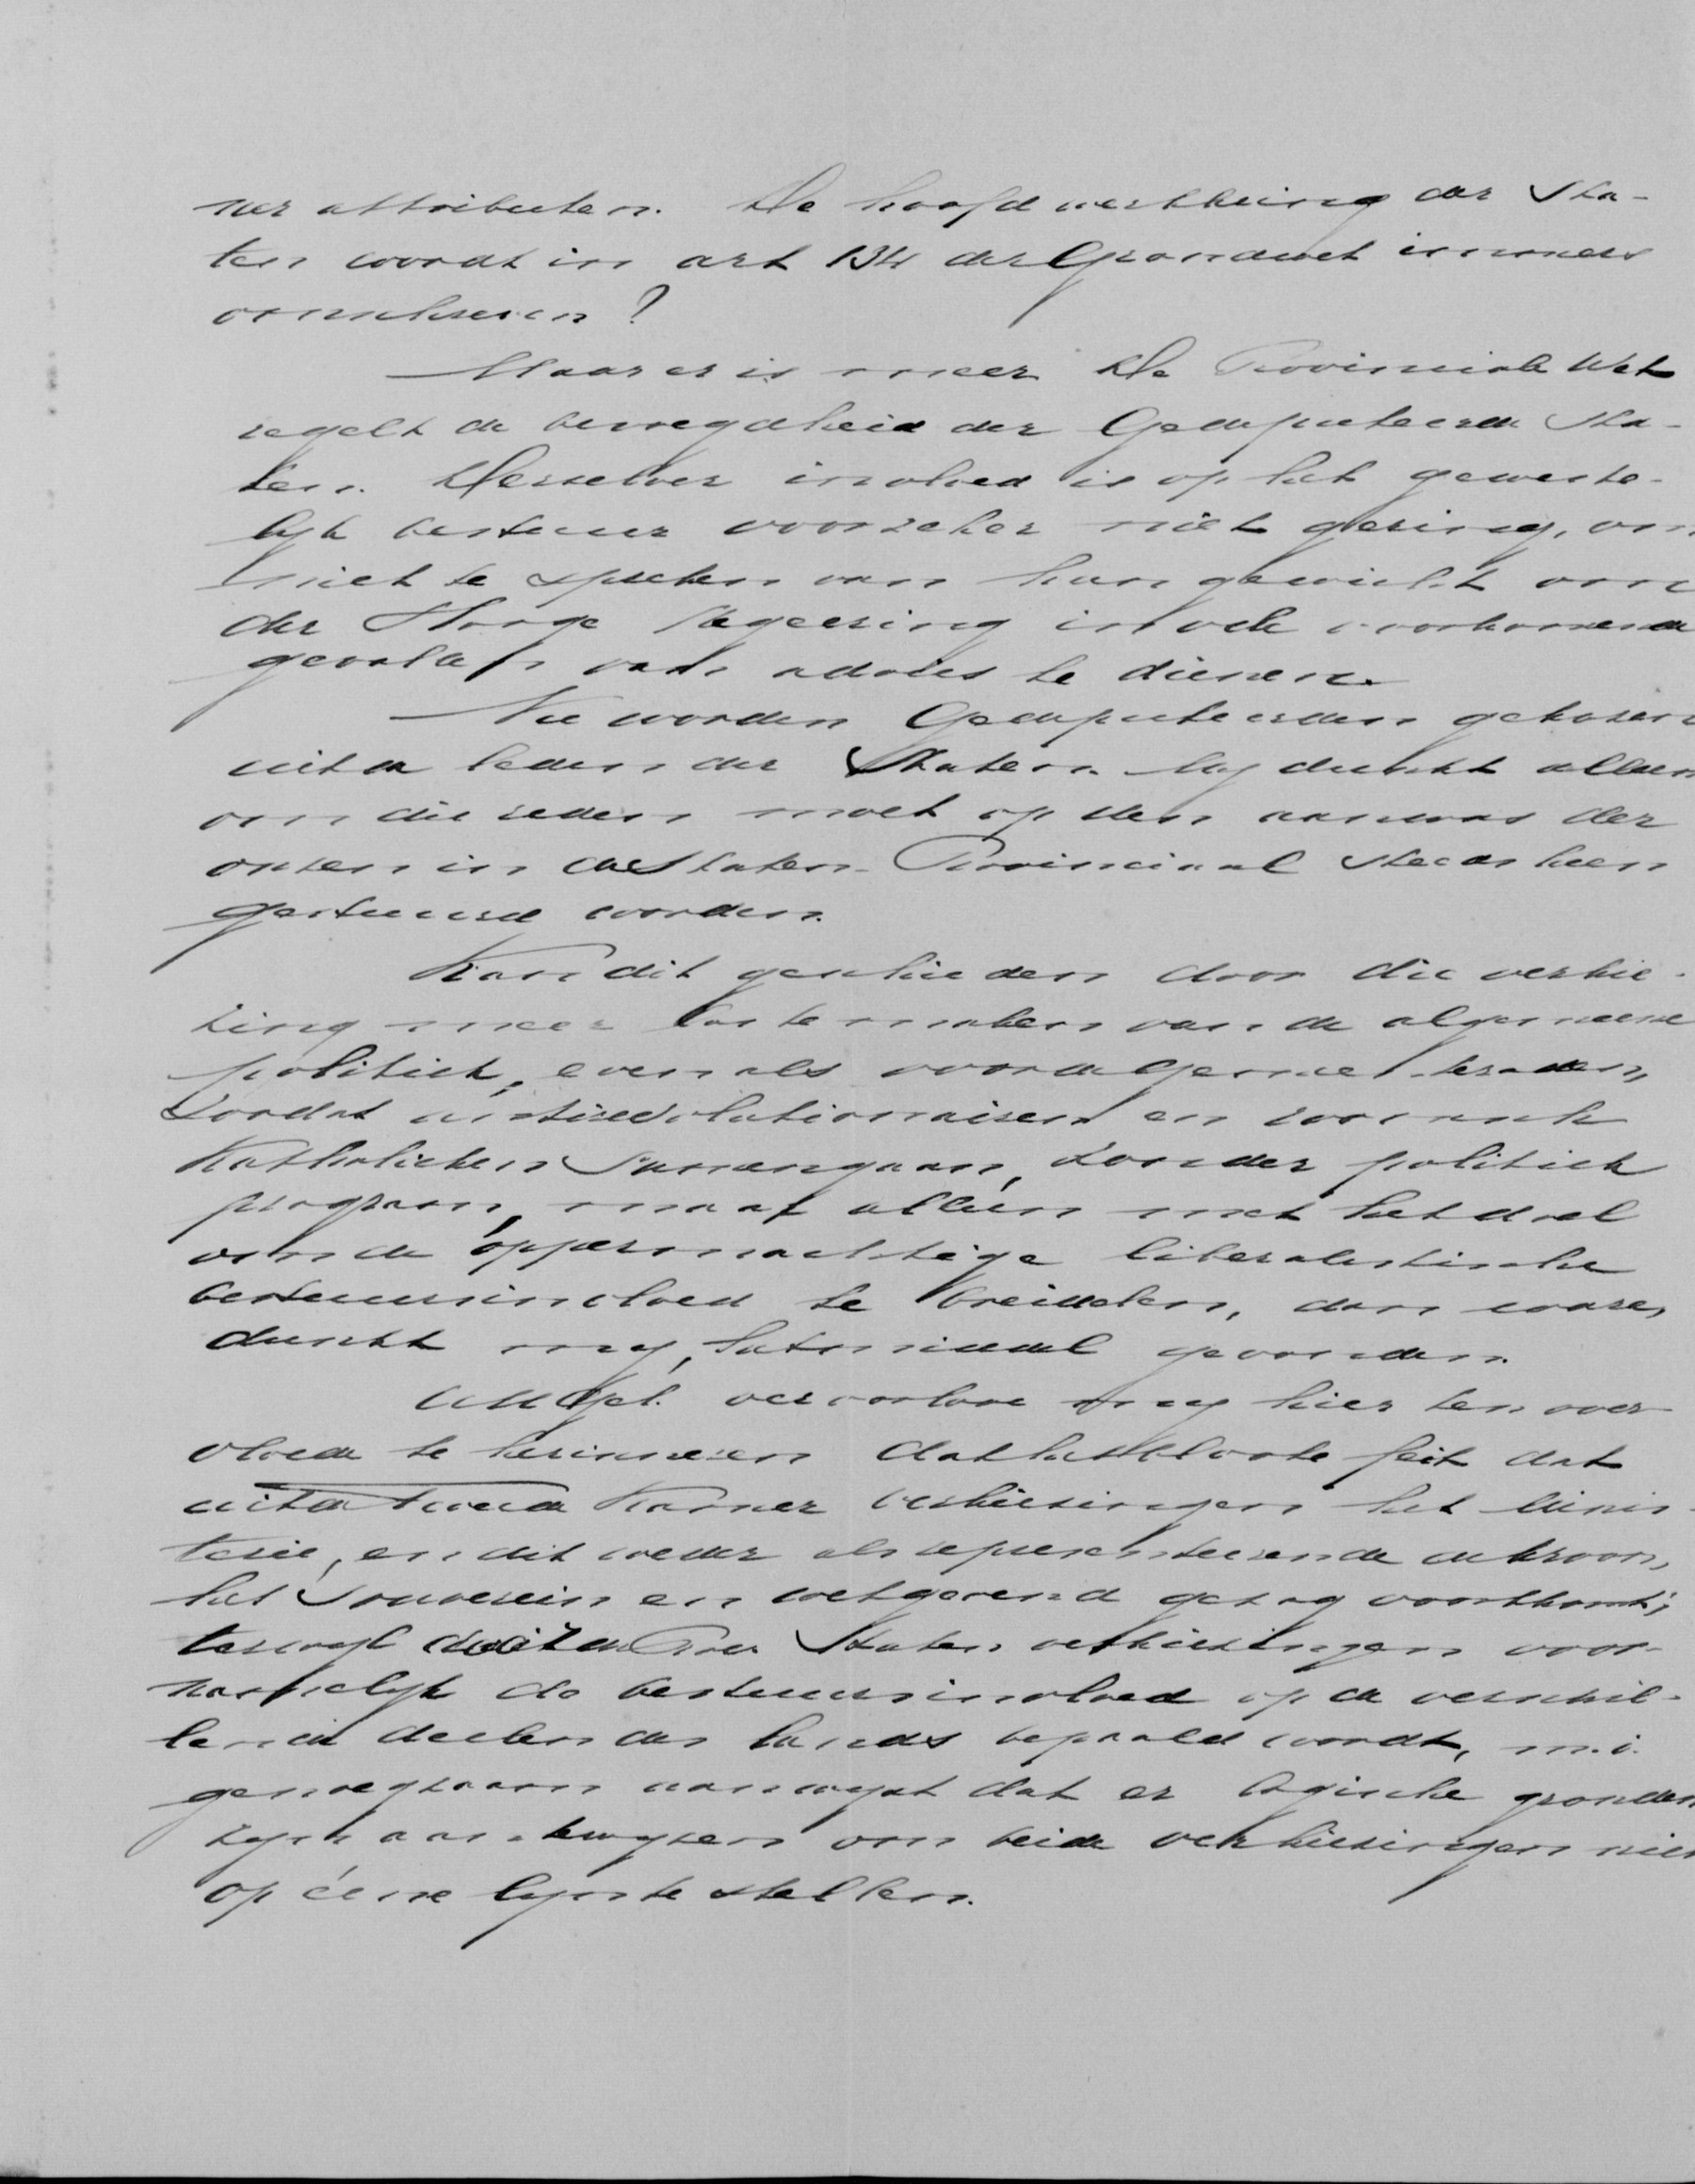 ner attributen. De hoofdwerkkring der Sta-
ten wordt in art 134 der Grondwet immers
omschreven?
Maar er is meer. De Provinciale Wet
regelt de bevoegdheid der Gedeputeerde Sta-
ten. Derzelver invloed is op het geweste-
lyk bestuur voorzeker niet gering, om
niet te spreken van hun gewicht om
der Hooge Regeering in vele voorkomende
gevallen van advies te dienen.
Nu worden Gedeputeerden gekozen
uit de leden der Staten. My dunkt alleen
om die reden moet op den aanwas der
onzen in de Staten-Provinciaal steeds heen
gestuurd worden.
Kan dit geschieden door die verkie-
zing meer los te maken van de algemeene
politiek, evenals voor de Gemeenteraden,
zoodat antirevolutionairen en zoo
Katholieken samengaan, zonder politiek
program, maar alléén met het doel
om de oppermachtige liberalistische
bestuursinvloed te breidelen, dan ware,
dunkt my, het middel gevonden.
UHEdGel. veroorlove my hier ten over-
vloede te herinneren dat het bloote feit dat
uit de Tweede Kamer verkiezingen het Minis-
terie, en dit weder als representeerende de kroon,
het souverein en wetgevend gezag voortkomt;
terwyl uit de Prov Staten verkiezingen voor-
namelyk de bestuursinvloed op de verschil-
lende deelen des lands bepaald wordt, m.i.
genoegzaam aanwyst dat er logische gronden
zyn aan te wyzen om beide verkiezingen niet
op ééne lyn te stellen.